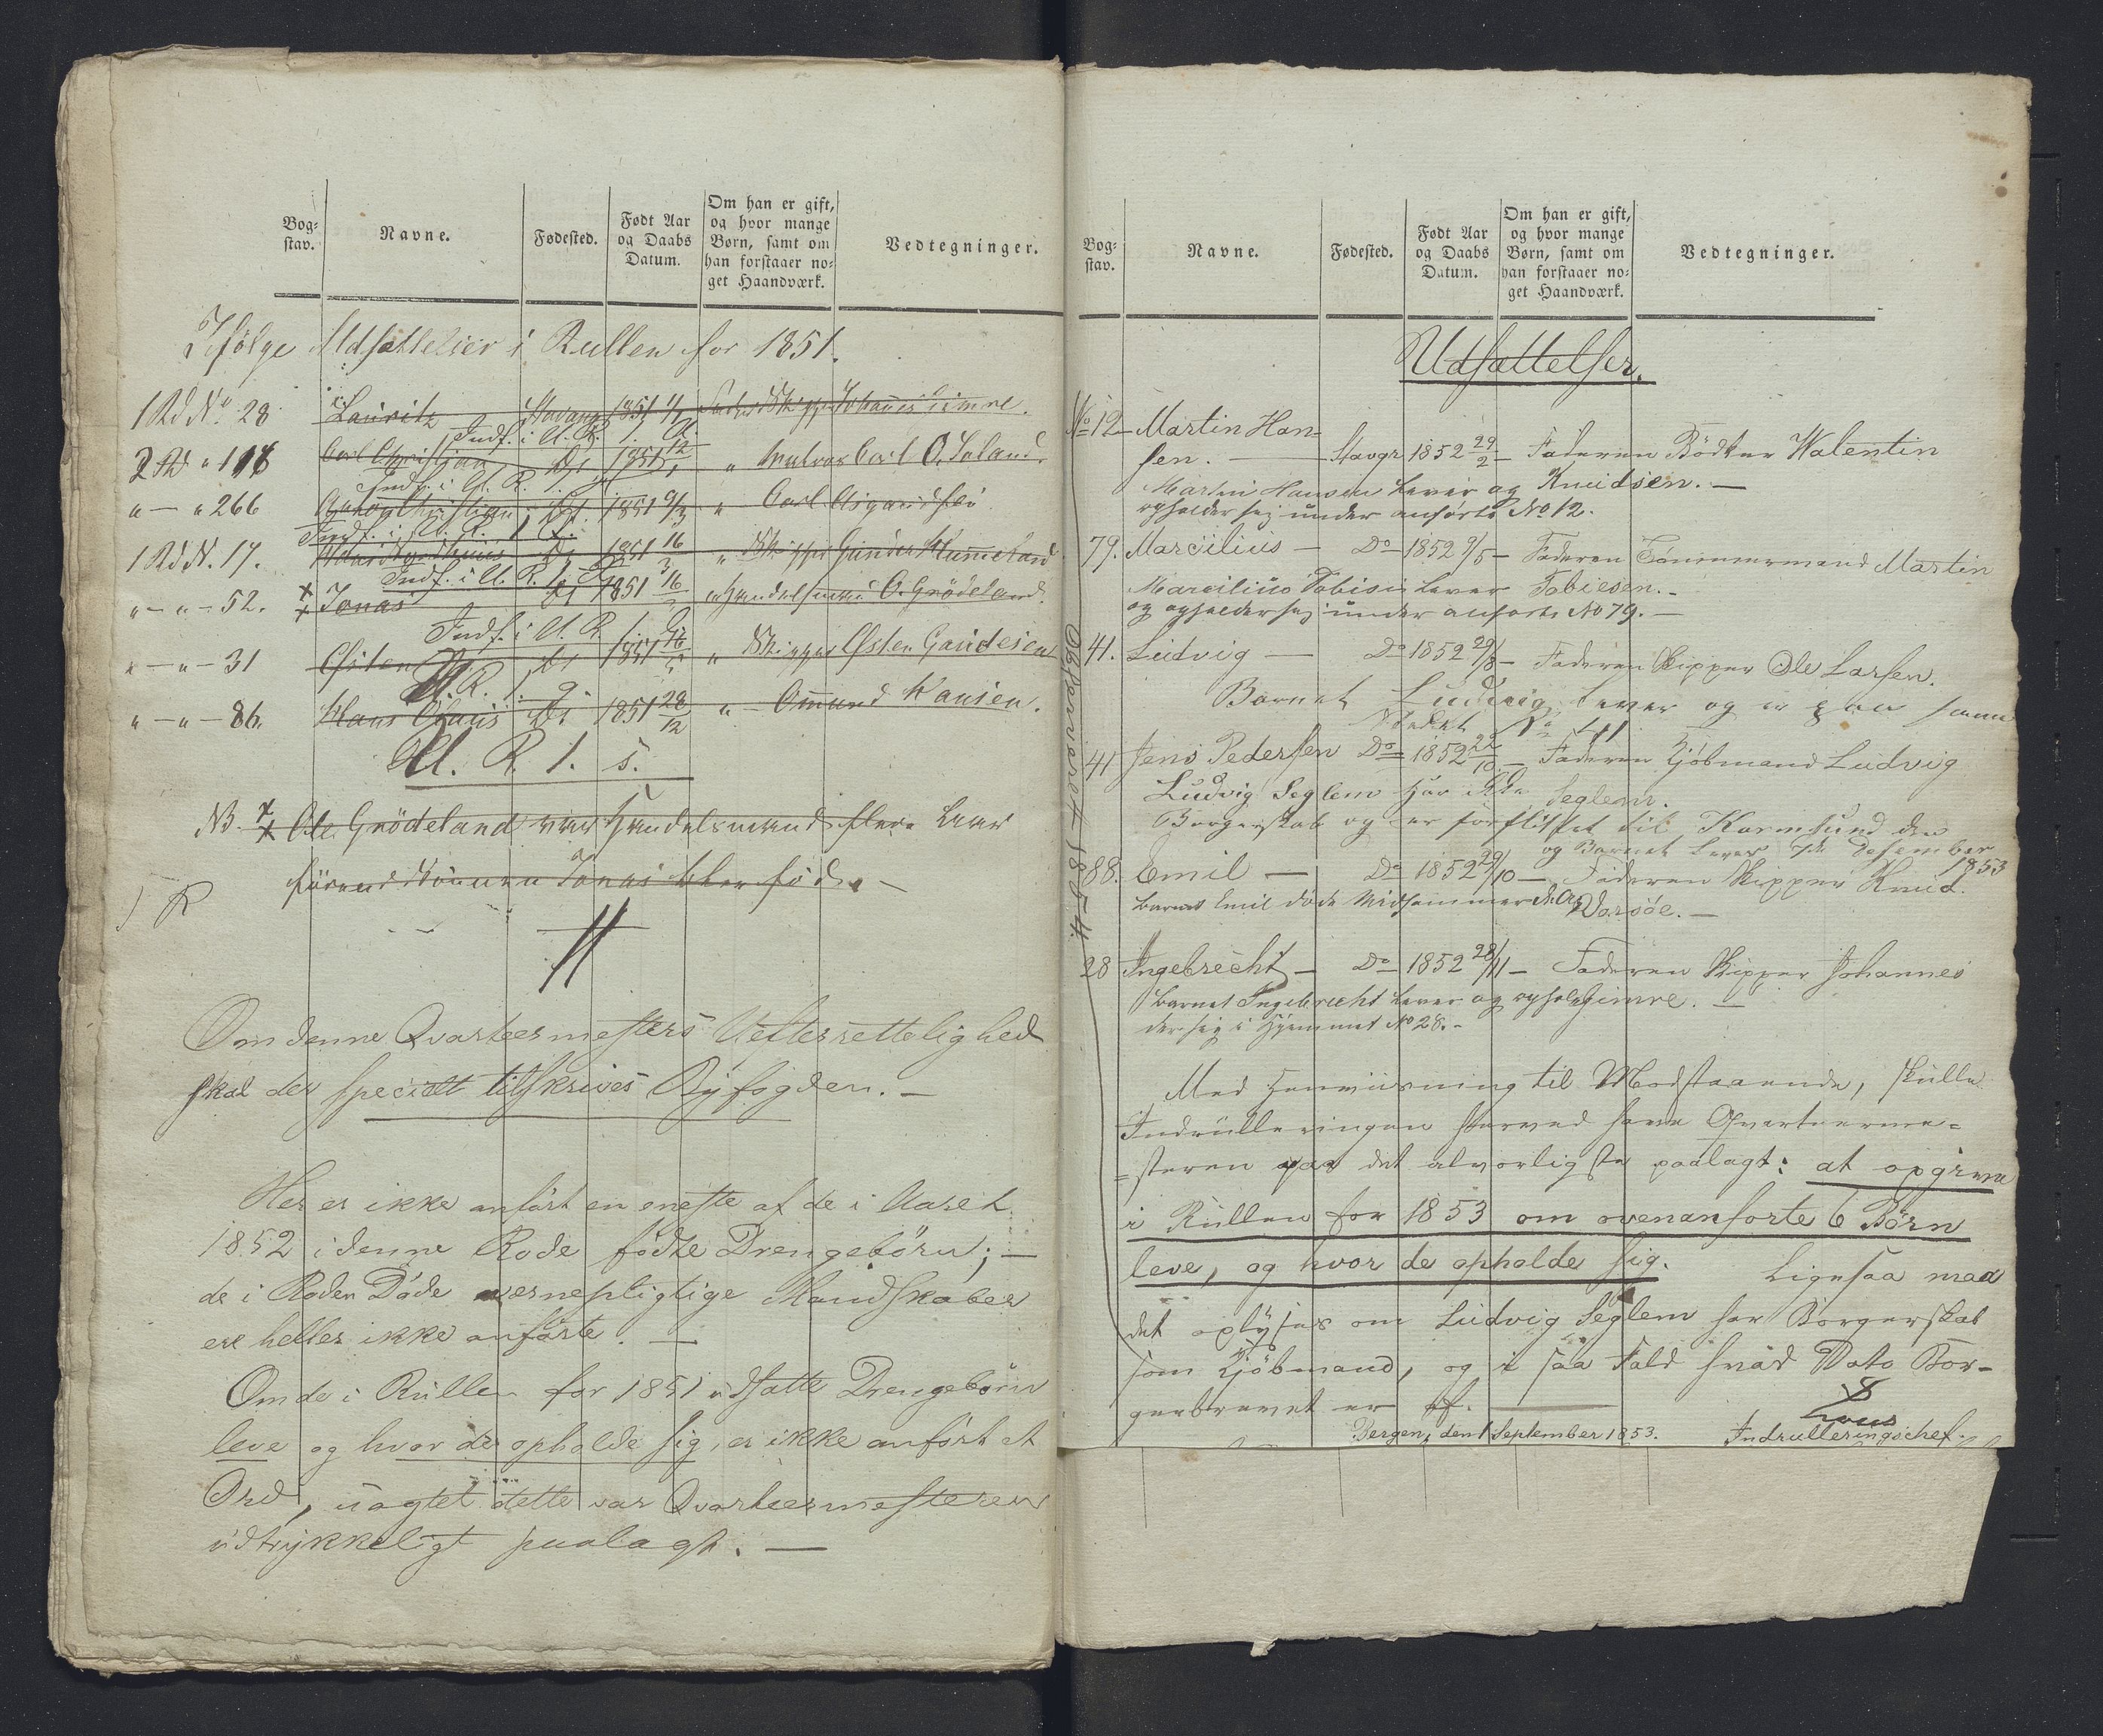 Bog-
stav.
Navne.
Fødested.
Født Aar
og Daabs
Datum.
Om han er gift,
og hvor mange
Børn, samt om
han forstaaer no-
get Haandværk.
Vedtegninger.
Ifølge Udsættelser i Rullen for 1851.
1 Rd No 28 Lauritz Stavang 1851 Fader Skipper Johannes Gimre.
Indf. i U. R.
2 Rd " 118 Carl Christian Do 1851 12/ " Carl O.
Indf. i U. R. 1.
" — " 266 Christian Do 1851 " Carl
Indf. i U. R. 1.
1 Rd N. 17. Do 1851 16/3 " Skipper Gunder Hummeland
Indf. i U. R. 1.
" — " — 52. Jonas Do 1851 16/ " Handelsmand O. Grödeland.
Indf. i U. R. 1.
" — " — 31 Østen Do 1851 " Skipper Østen Gaudesen
U. R. 1. 9.
" — " — 86. Hans Do 1851 28/12 " Ommund Hansen.
U. R. 1. 5.
NB. Ole Grödeland var Handelsmand flere Aar
förend Sönnen Jonas blev föd. —
R
Om denne Qvarteermesters Uefterrettelighed
skal der specielt tilskrives Byfogden. —
Her er ikke anfört en eneste af de i Aaret
1852 i denne Rode födte Drengebörn; —
de i Roden Döde værnepligtige Mandskaber
ere heller ikke anförte. —
Om de i Rullen for 1851 udsatte Drengebörn
leve og hvor de opholde sig, er ikke anfört et
Ord, uagtet dette var Qvarteermesteren
udtrykkeligt paalagt. —
Bog-
stav.
Navne.
Fødested.
Født Aar
og Daabs
Datum.
Om han er gift,
og hvor mange
Børn, samt om
han forstaaer no-
get Haandværk.
Vedtegninger.
Udsættelser.
No 12 — Martin Han-
sen. — Stavgr 1852 29/2 — Faderen Bödker Valentin
Knudsen. —
Martin Hansen lever og
opholder sig under anförte No 12.
79. Marcilius — Do 1852 9/5 — Faderen Tömmermand Martin
Tobiesen. —
Marcilius Tobisen lever
og opholder sig under anförte No 79. —
41. Ludvig — Do 1852 29/8 — Faderen Skipper Ole Larsen.
Barnet Ludvig lever og er paa samme
No 41
41 Jens Pedersen Do 1852 22/10 — Faderen Kjöbmand Ludvig
Seglem.
Ludvig Seglem har ikke
Borgerskab og er forflöttet til Karmsund den
og Barnet lever 7de Desember
1853
88. Emil — Do 1852 29/10 — Faderen Skipper Knud
Barnet Emil döde Midsommer d. A.
28 Ingebrecht — Do 1852 28/11 — Faderen Skipper Johannes
Gimre. —
Barnet Ingebrecht lever og ophol-
der sig i Hjemmet No 28. —
Med Henviisning til Modstaaende, skulle
Indrulleringen herved have Qvarteerme-
=steren paa det alvorligste paalagt: at opgive
i Rullen for 1853 om ovenanförte 6 Börn
leve, og hvor de opholde sig. Ligesaa maa
det oplyses om Ludvig Seglem har Borgerskab
som Kjöbmand, og i saa Fald hvad Dato Bor-
gerbrevet er af.
Bergen, den 1 September 1853.
Indrulleringschef.
1854